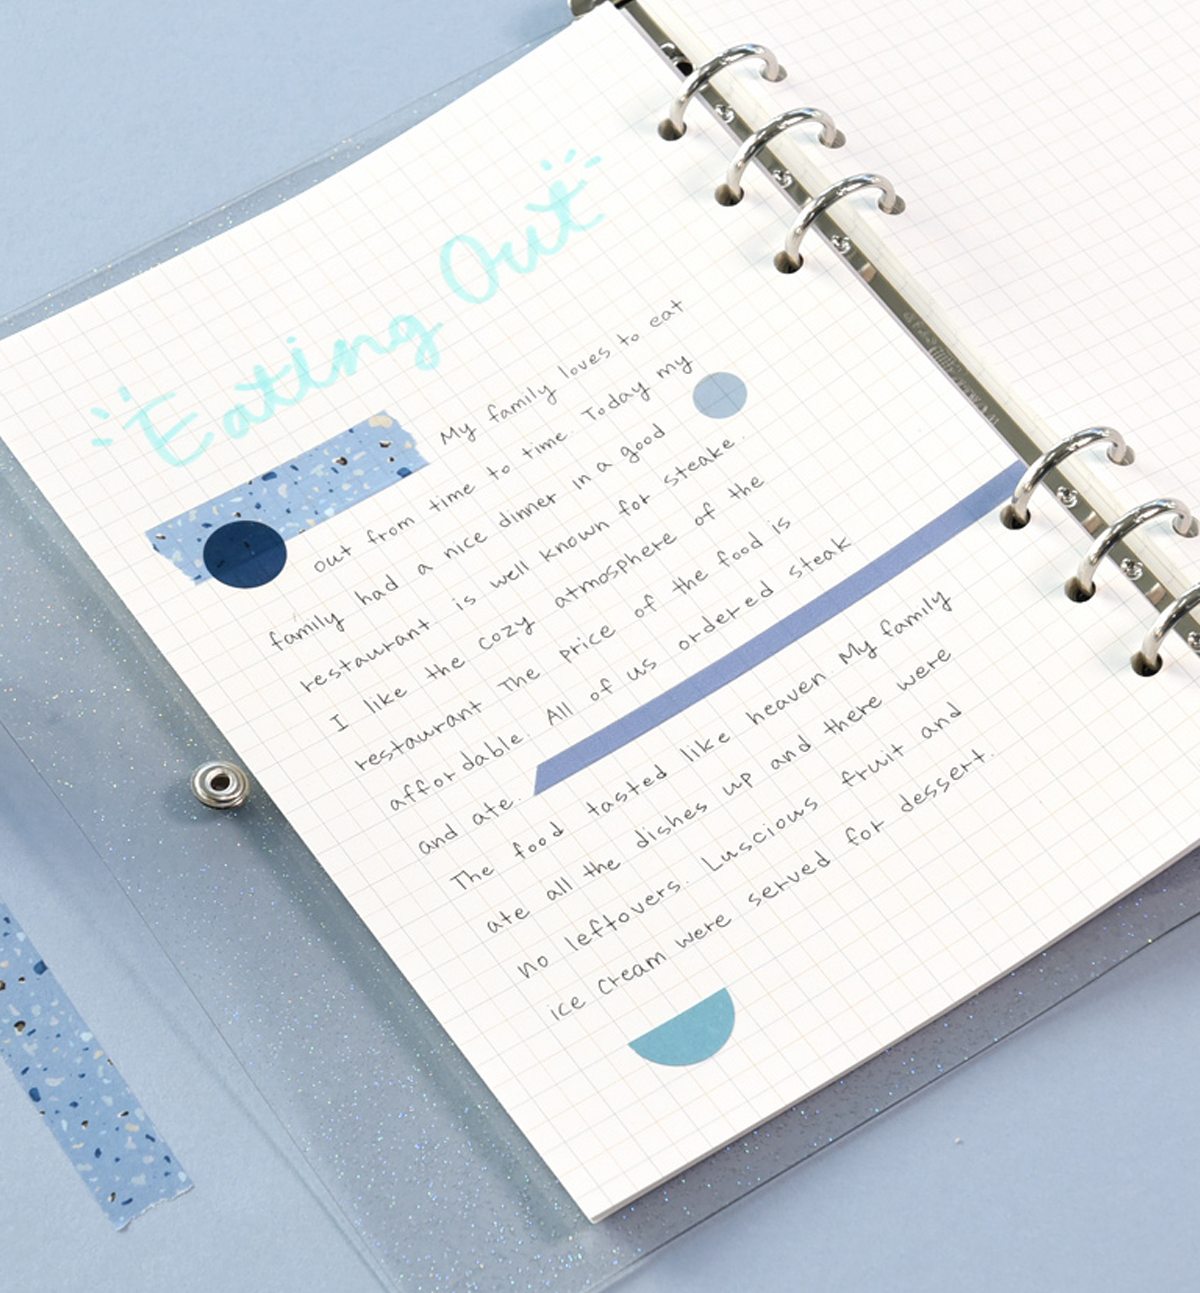 Eating Out
My family loves to eat
out from time to time. Today my
family had a nice dinner in a good
restaurant. is well known for steake.
I like the cozy atmosphere of the
restaurant The price of the food is
affordable. All of us ordered steak
and ate.
The food tasted like heaven My family
ate all the dishes up and there were
no leftovers. Luscious fruit and
ice cream were served for dessert.